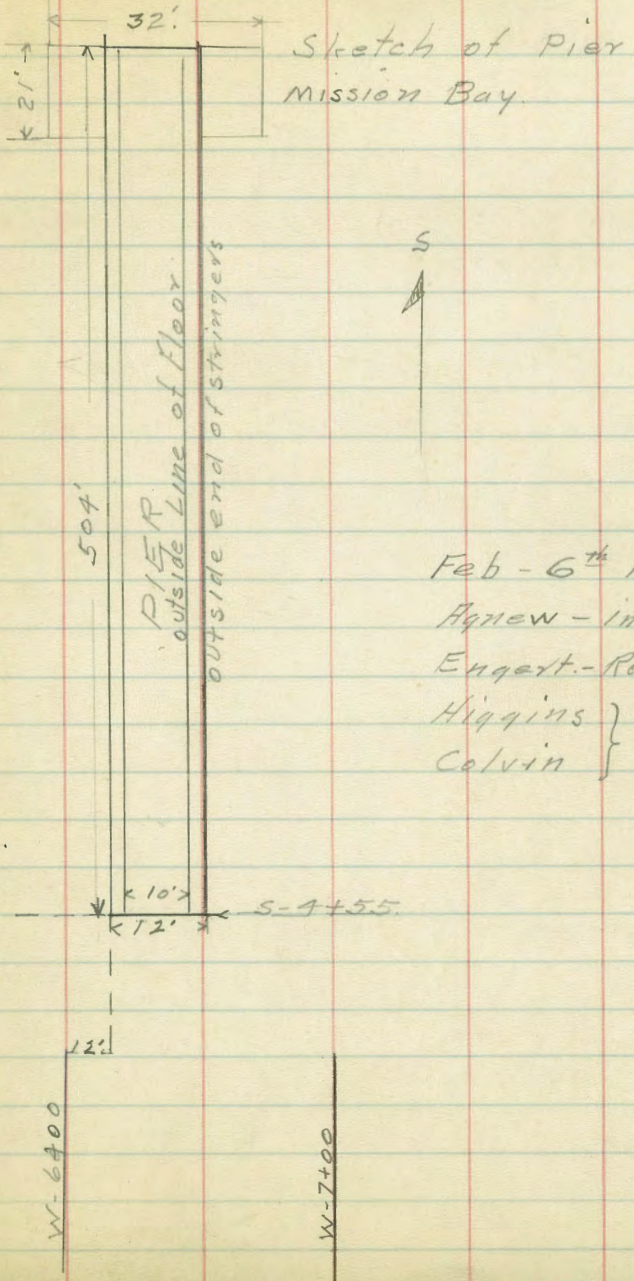 32'
Sketch of Pier
Mission Bay.
21'
S
504'
PIER
outside Line of Floor
outside end of stringers
Feb - 6th
Agnew -
Engert. -
Higgins }
Colvin
10'
S-4+55.
12'
12'
W-6+00
W-7+00